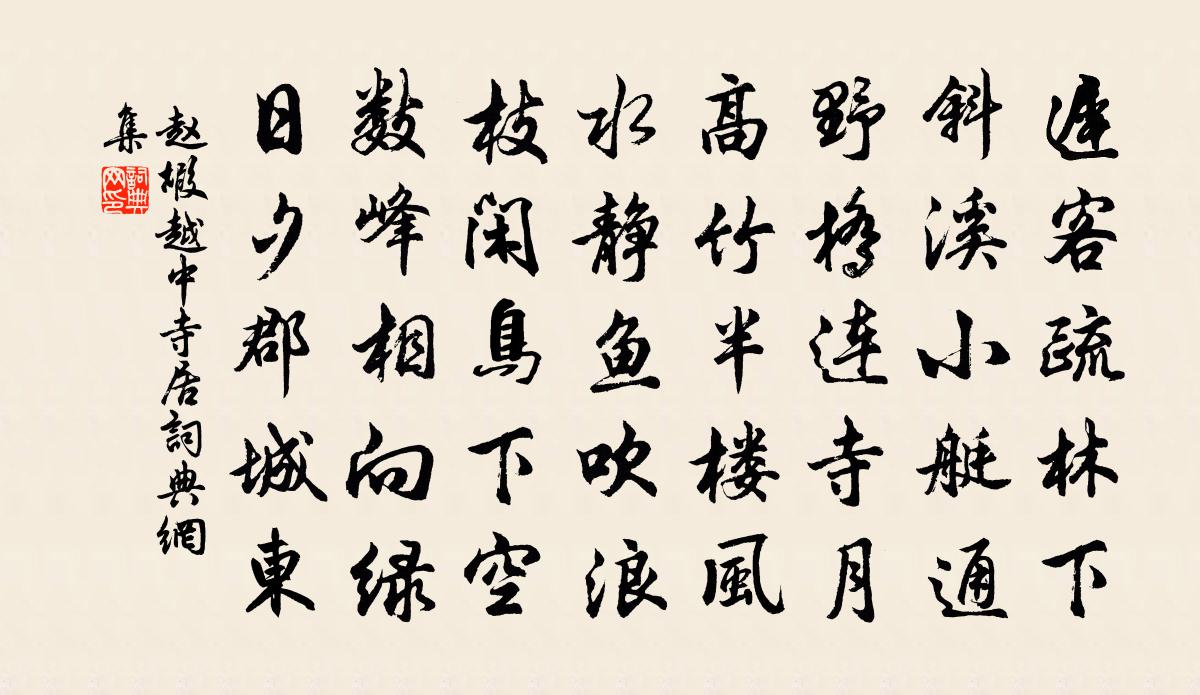 遲客疏林下
斜溪小艇通
野橋連寺月
高竹半楼風
水静鱼吹浪
枝閑鳥下空
數峰相向緑
日夕郡城東
赵嘏越中寺居詞典網
集
詞典
网印